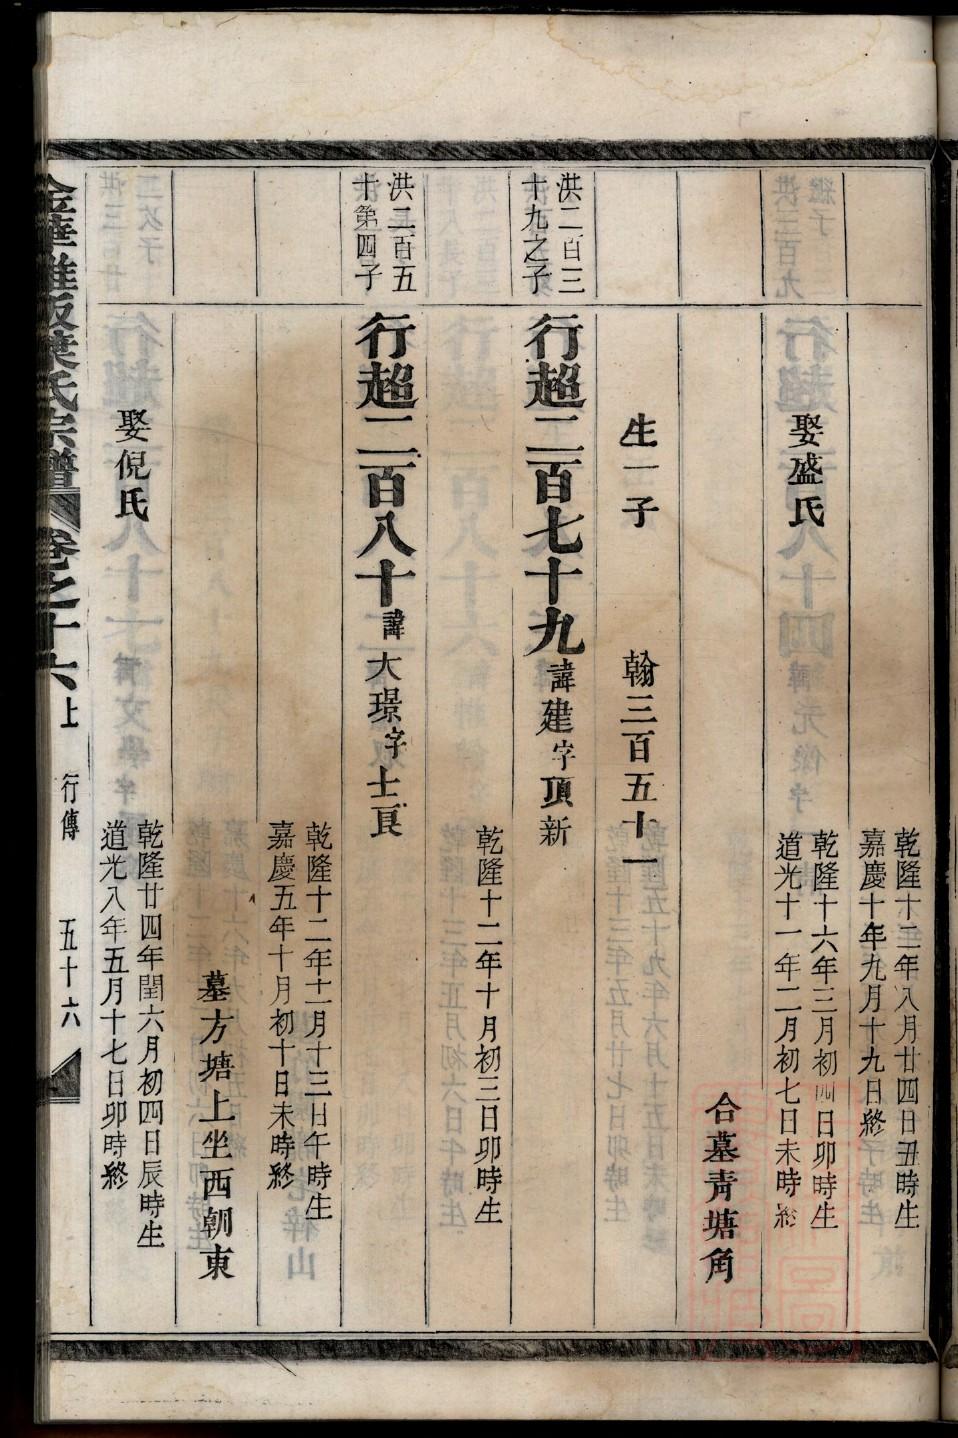 乾隆十二年八月廿四日丑時生
嘉慶十年九月十九日終
娶盛氏
乾隆十六年三月初四日卯時生
道光十一年二月初七日未時終
合墓靑塘角
生一子 翰三百五十一
洪二百三
十九之子
行超二百七十九諱建字頂新
乾隆十二年十月初三日卯時生
洪二百五
十第四子
行超二百八十諱大璟字士良
乾隆十二年十一月十三日午時生
嘉慶五年十月初十日未時終
墓方塘上坐西朝東
娶倪氏
乾隆廿四年閏六月初四日辰時生
道光八年五月十七日卯時終
金華雅畈葉氏宗譜 卷之十六上 行傳 五十六